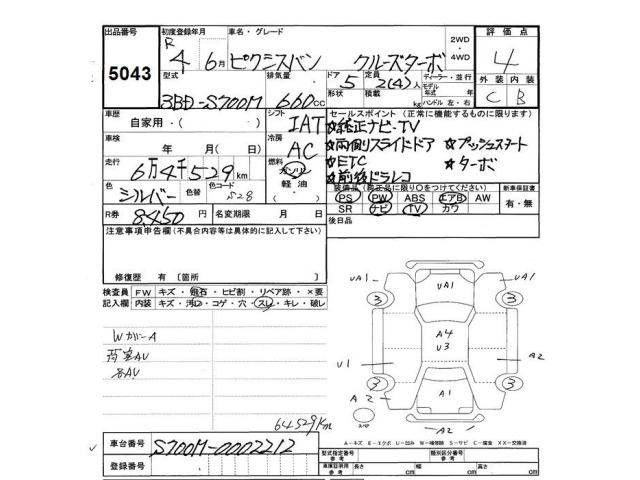 出品番号 5043
初度登録年月 R 4年 6月
車名・グレード ピクシスバン クルーズターボ
2WD・4WD
評価点 4
型式 3BD-S700M
排気量 660cc
ドア 5
形状
定員 2(4)人
積載 kg
ディーラー・並行
モデル年式 年
ハンドル 左・右
外装 C
内装 B
車歴 自家用・( )
シフト IAT
セールスポイント(正常に機能するものに限ります)
☆純正ナビ・TV
☆両側スライドドア ☆プッシュスタート
☆ETC ☆ターボ
☆前後ドラレコ
車検 年 月( 日)
冷房 AC
走行 6万4千529km
燃料 ガソリン 軽油・( )
色 シルバー
色替
色コード S28
装備品(純正品に限り○をつけてください)
PS PW ABS エアB AW
SR ナビ TV カワ
新車保証書 有・無
R券 8450円
名変期限 月 日
後日品
注意事項申告欄(不具合内容等は具体的に記入して下さい)
修復歴 有〔箇所 〕
検査員記入欄
FW キズ・飛石・ヒビ割・リペア跡・×要
内装 キズ・汚レ・コゲ・穴・スレ・キレ・破レ
WカバーA
各AU
64529Km
UA1 UA1 UA1
3 3
A4
U3
U1 A2
3 3
A2 A1
A2
スペア
A-キズ E-エクボ U-凹み W-補修跡 S-サビ C-腐食 XX-交換済
車台番号 S700M-0002212
登録番号
型式指定番号 参考
類別区分番号 参考
車庫証明用 参考 長さ cm 幅 cm 高さ cm